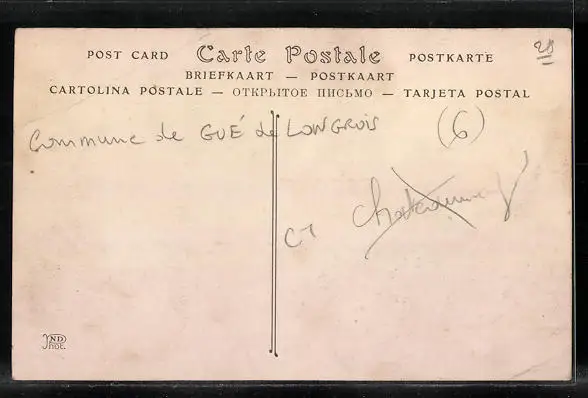 POST CARD Carte Postale POSTKARTE
28
BRIEFKAART — POSTKAART
CARTOLINA POSTALE — ОТКРЫТОЕ ПИСЬМО — TARJETA POSTAL
Commune de GUÉ de LONGROIS (6)
CT
ND
Phot.